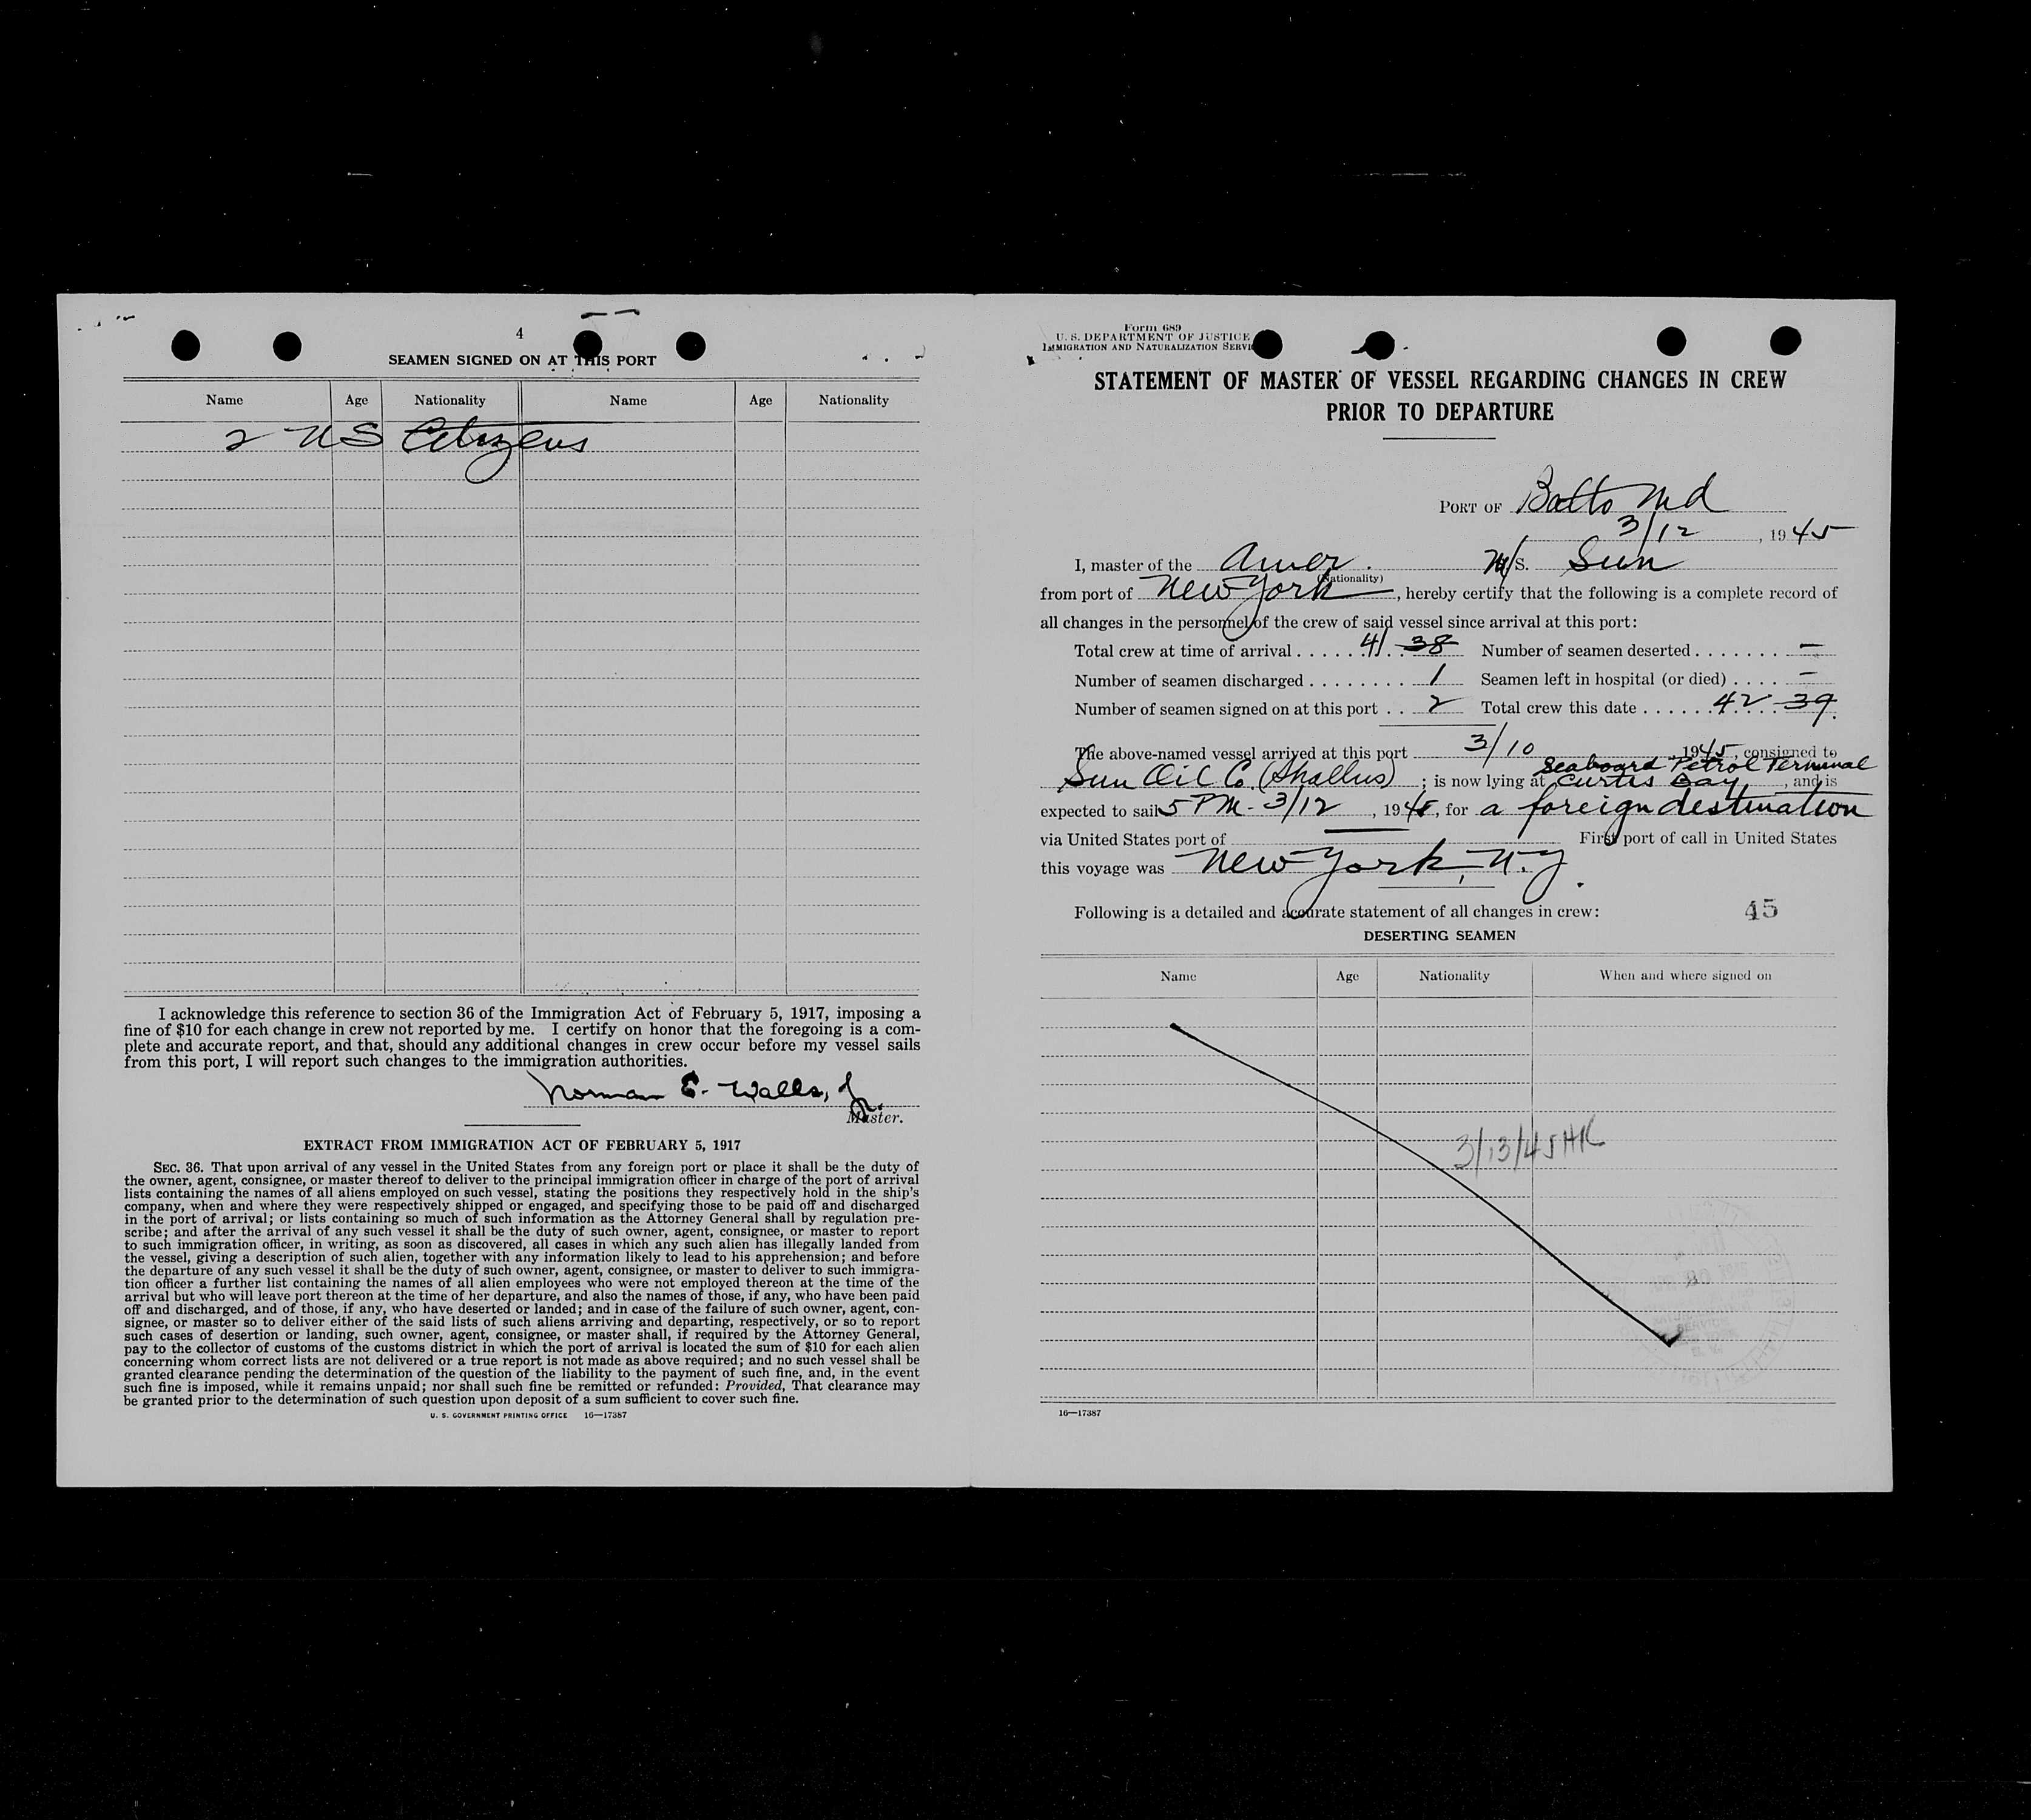 4
SEAMEN SIGNED ON AT THIS PORT
Name Age Nationality Name Age Nationality
2 US Citizens
I acknowledge this reference to section 36 of the Immigration Act of February 5, 1917, imposing a
fine of $10 for each change in crew not reported by me. I certify on honor that the foregoing is a com-
plete and accurate report, and that, should any additional changes in crew occur before my vessel sails
from this port, I will report such changes to the immigration authorities.
Norman E. Walls, Jr.
Master.
EXTRACT FROM IMMIGRATION ACT OF FEBRUARY 5, 1917
SEC. 36. That upon arrival of any vessel in the United States from any foreign port or place it shall be the duty of
the owner, agent, consignee, or master thereof to deliver to the principal immigration officer in charge of the port of arrival
lists containing the names of all aliens employed on such vessel, stating the positions they respectively hold in the ship's
company, when and where they were respectively shipped or engaged, and specifying those to be paid off and discharged
in the port of arrival; or lists containing so much of such information as the Attorney General shall by regulation pre-
scribe; and after the arrival of any such vessel it shall be the duty of such owner, agent, consignee, or master to report
to such immigration officer, in writing, as soon as discovered, all cases in which any such alien has illegally landed from
the vessel, giving a description of such alien, together with any information likely to lead to his apprehension; and before
the departure of any such vessel it shall be the duty of such owner, agent, consignee, or master to deliver to such immigra-
tion officer a further list containing the names of all alien employees who were not employed thereon at the time of the
arrival but who will leave port thereon at the time of her departure, and also the names of those, if any, who have been paid
off and discharged, and of those, if any, who have deserted or landed; and in case of the failure of such owner, agent, con-
signee, or master so to deliver either of the said lists of such aliens arriving and departing, respectively, or so to report
such cases of desertion or landing, such owner, agent, consignee, or master shall, if required by the Attorney General,
pay to the collector of customs of the customs district in which the port of arrival is located the sum of $10 for each alien
concerning whom correct lists are not delivered or a true report is not made as above required; and no such vessel shall be
granted clearance pending the determination of the question of the liability to the payment of such fine, and, in the event
such fine is imposed, while it remains unpaid; nor shall such fine be remitted or refunded: Provided, That clearance may
be granted prior to the determination of such question upon deposit of a sum sufficient to cover such fine.
U. S. GOVERNMENT PRINTING OFFICE 16—17387
Form 689
U. S. DEPARTMENT OF JUSTICE
IMMIGRATION AND NATURALIZATION SERVI
STATEMENT OF MASTER OF VESSEL REGARDING CHANGES IN CREW
PRIOR TO DEPARTURE
PORT OF Balto Md
3/12, 1945
I, master of the Amer. M/S. Sun
(Nationality)
from port of New York, hereby certify that the following is a complete record of
all changes in the personnel of the crew of said vessel since arrival at this port:
Total crew at time of arrival 41 38 Number of seamen deserted —
Number of seamen discharged 1 Seamen left in hospital (or died) —
Number of seamen signed on at this port 2 Total crew this date 42 39
The above-named vessel arrived at this port 3/10, 1945, consigned to
Seaboard Petrol Terminal
Sun Oil Co. (Shallus); is now lying at Curtis Bay, and is
expected to sail 5 PM - 3/12, 1945, for a foreign destination
via United States port of — First port of call in United States
this voyage was New York, N.Y.
Following is a detailed and accurate statement of all changes in crew: 45
DESERTING SEAMEN
Name Age Nationality When and where signed on
3/13/45 HK
SERVICE
16—17387